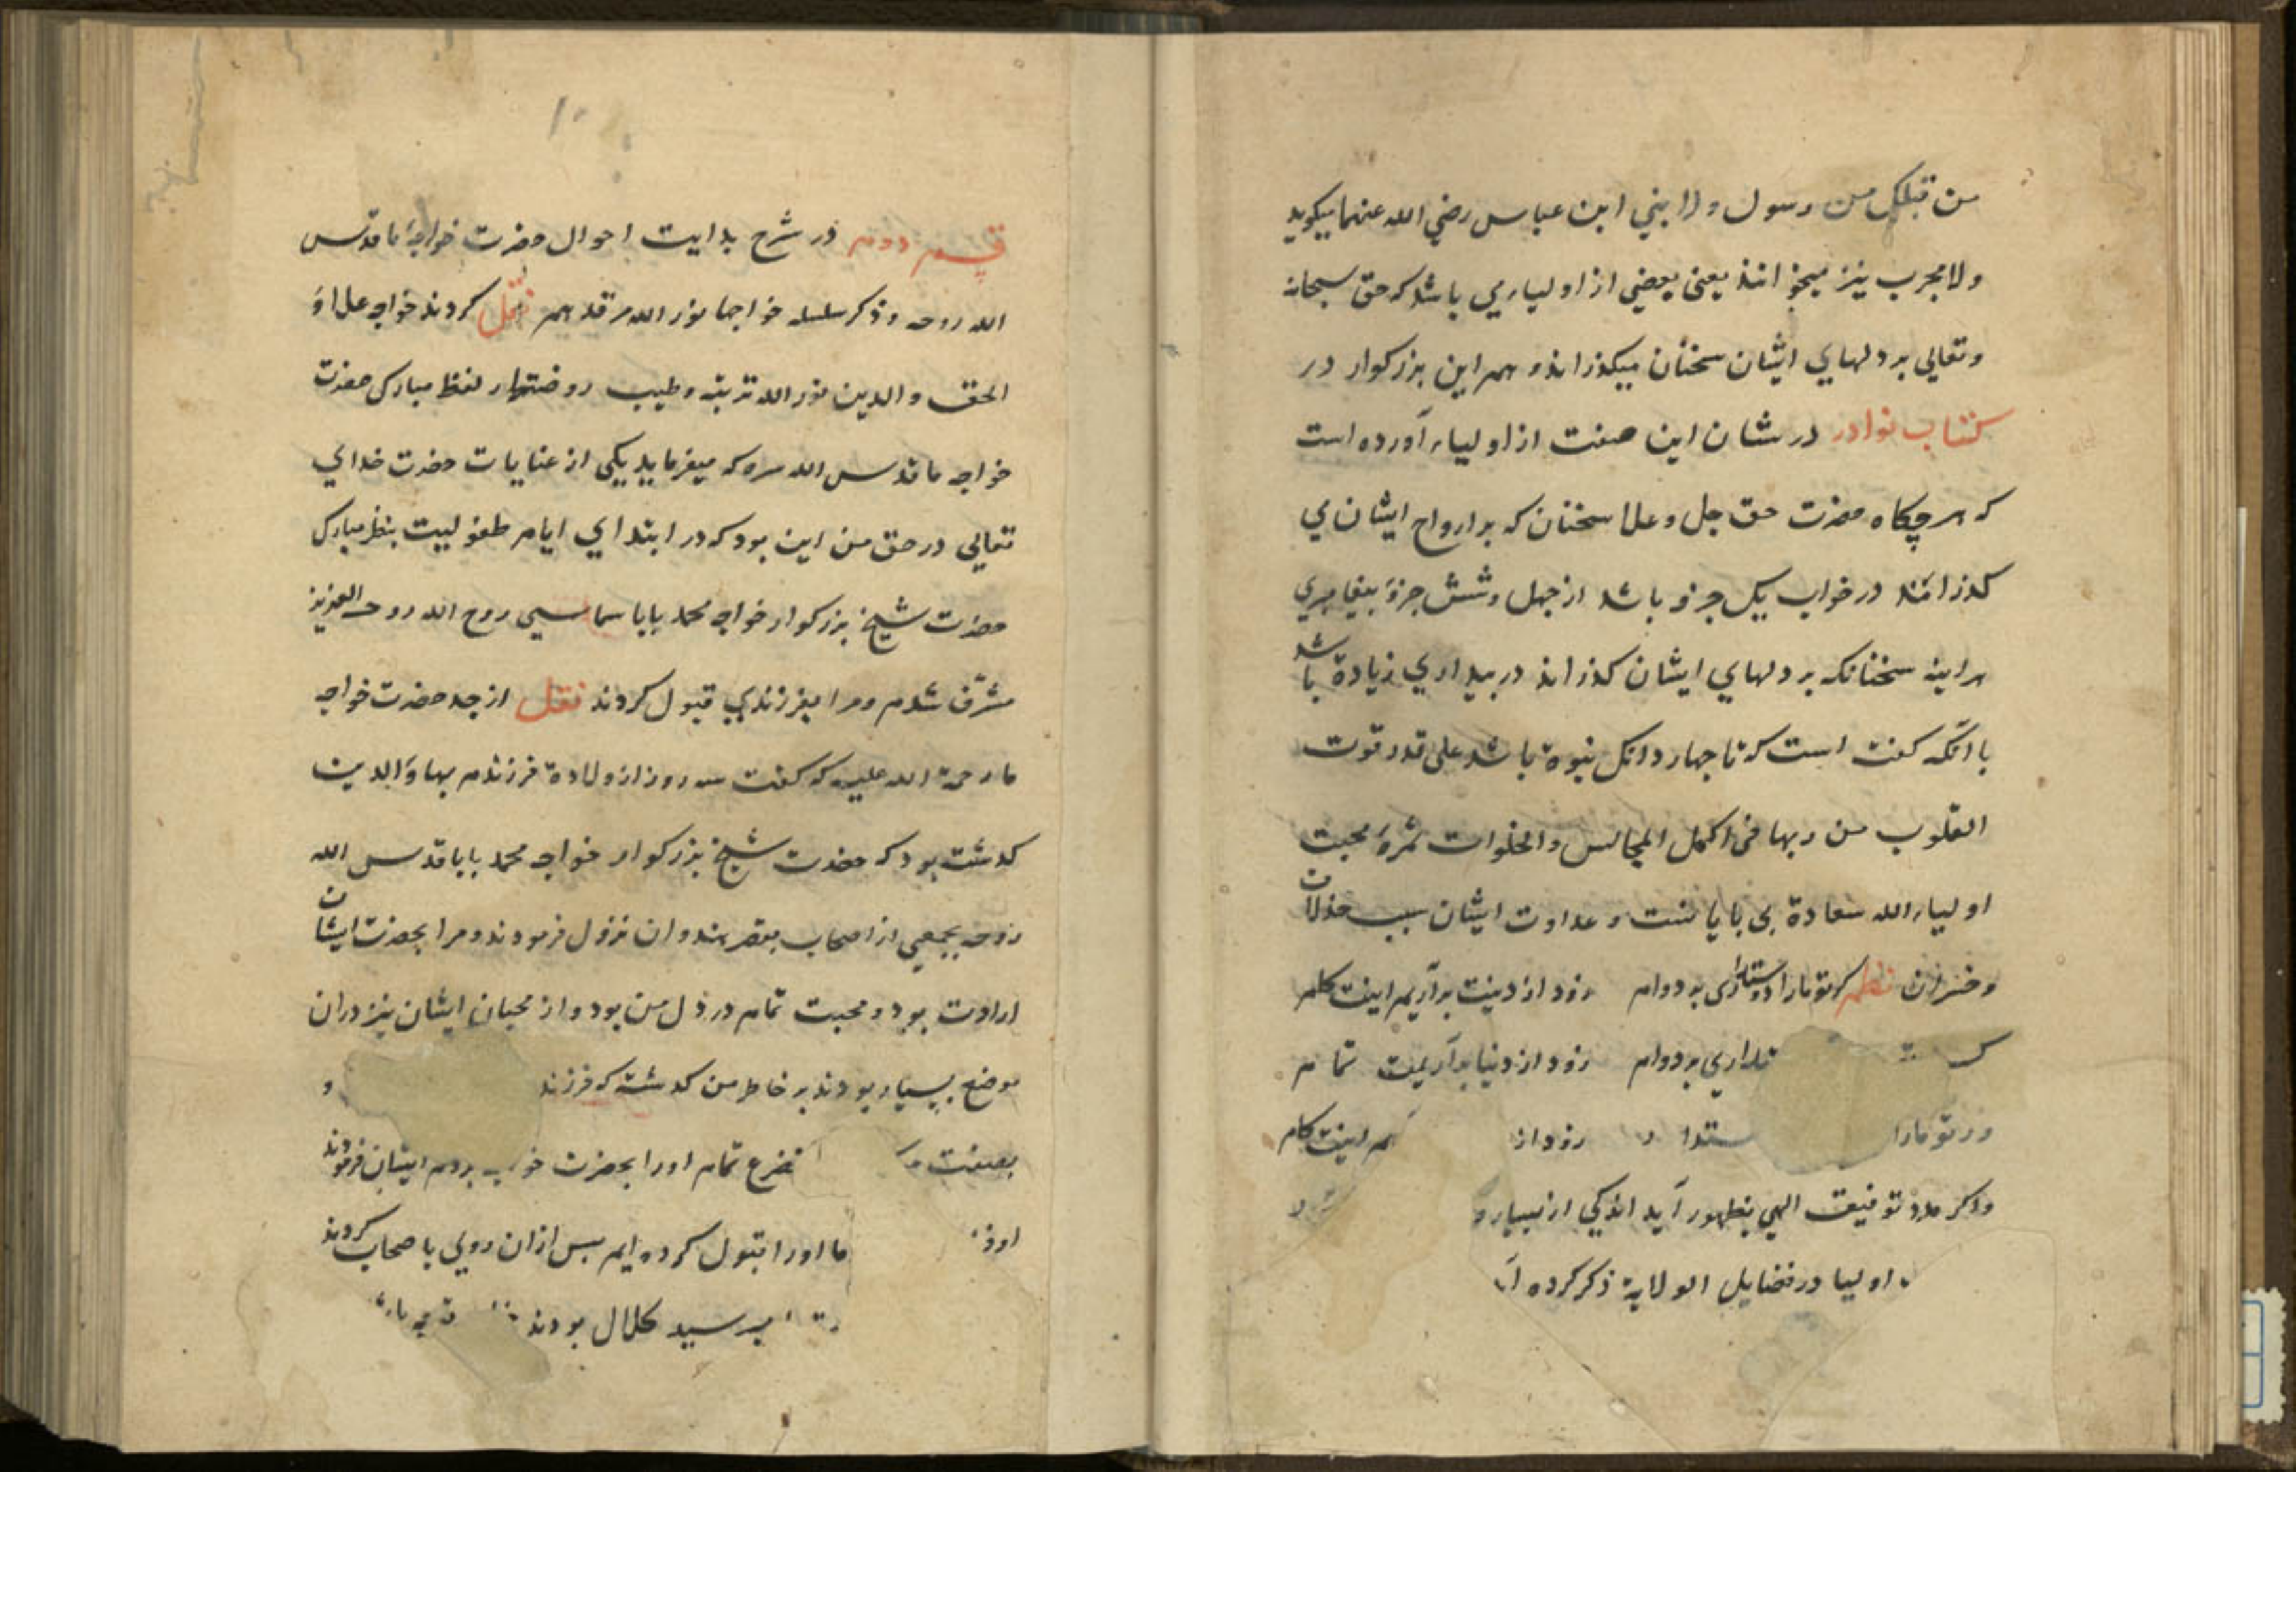 من قبلك من رسول ولا نبي ابن عباس رضي الله عنهما ميكويد
ولا محرب نيز ميخوانند يعنى بعضي از اوليا ري باشد كه حق سبحانه
وتعالي بر دلهاي ايشان سخنان ميكذراند و هم اين بزركوار در
كتاب نوادر در شان اين صفت از اولياء آورده است
كه هرچكاه حضرت حق جل وعلا سخنان كه بر ارواح ايشان مي
كذرانند در خواب يك جزو باشد از چهل وشش جزؤ بيغامبري
هراينه سخنانكه بر دلهاي ايشان كذراند در بيداري زيادة باشد
با آنكه كفته است كه تا جهار دانك نبوة باشد على قدر قوت
القلوب من ربها فى اكمل المجالس والخلوات ثمرهٔ محبت
اولياء الله سعادة بى باياننست و عداوت ايشان سبب خذلان
وخسران نظم كر تو مارا دوستدارى بر دوام زود از دينت برآريم اينت كلم
تداري بر دوام زود از دنيا برآريمت تمام
ور تو مارا ستدا زود از اينت كام
واكر مدد توفيق الهي بظهور آيد اندكي از بسيار
اوليا در فضايل الولاية ذكر كرده
١٠
قسم دوم در شرح بدايت احوال حضرت خواجهٔ ما قدّس
الله روحه وذكر سلسله خواجها نور الله مرقدهم نقل كردند خواجه علاؤ
الحق والدين نور الله تربته وطيب روضتها ر لفظ مبارك حضرت
خواجه ما قدس الله سره كه ميفرمايد يكى از عنايات حضرت خداي
تعالي در حق من اين بود كه در ابتداي ايام طفوليت بنظر مبارك
حضرت شيخ بزركوار خواجه محمد بابا سماسي روح الله روحه العزيز
مشرّف شدم ومرا بفرزندي قبول كردند نقل از جد حضرت خواجه
ما رحمة الله عليه كه كفت سه روز از ولادة فرزندم بهاؤالدين
كدشته بود كه حضرت شيخ بزركوار خواجه محمد بابا قدس الله
روحه بجمعي از اصحاب بقصر هندوان نزول فرمودند ومرا بحضرت ايشان
ارادت بود و محبت تمام در دل من بود و از محبان ايشان نيز دران
موضع بسيار بودند بر خاطر من كدشته كه فرزند و
بصفت تضرع تمام اورا بحضرت خو بردم ايشان فرمودند
ما اورا قبول كرده ايم بس ازان روي با صحاب كردند
سيد كلال بودند